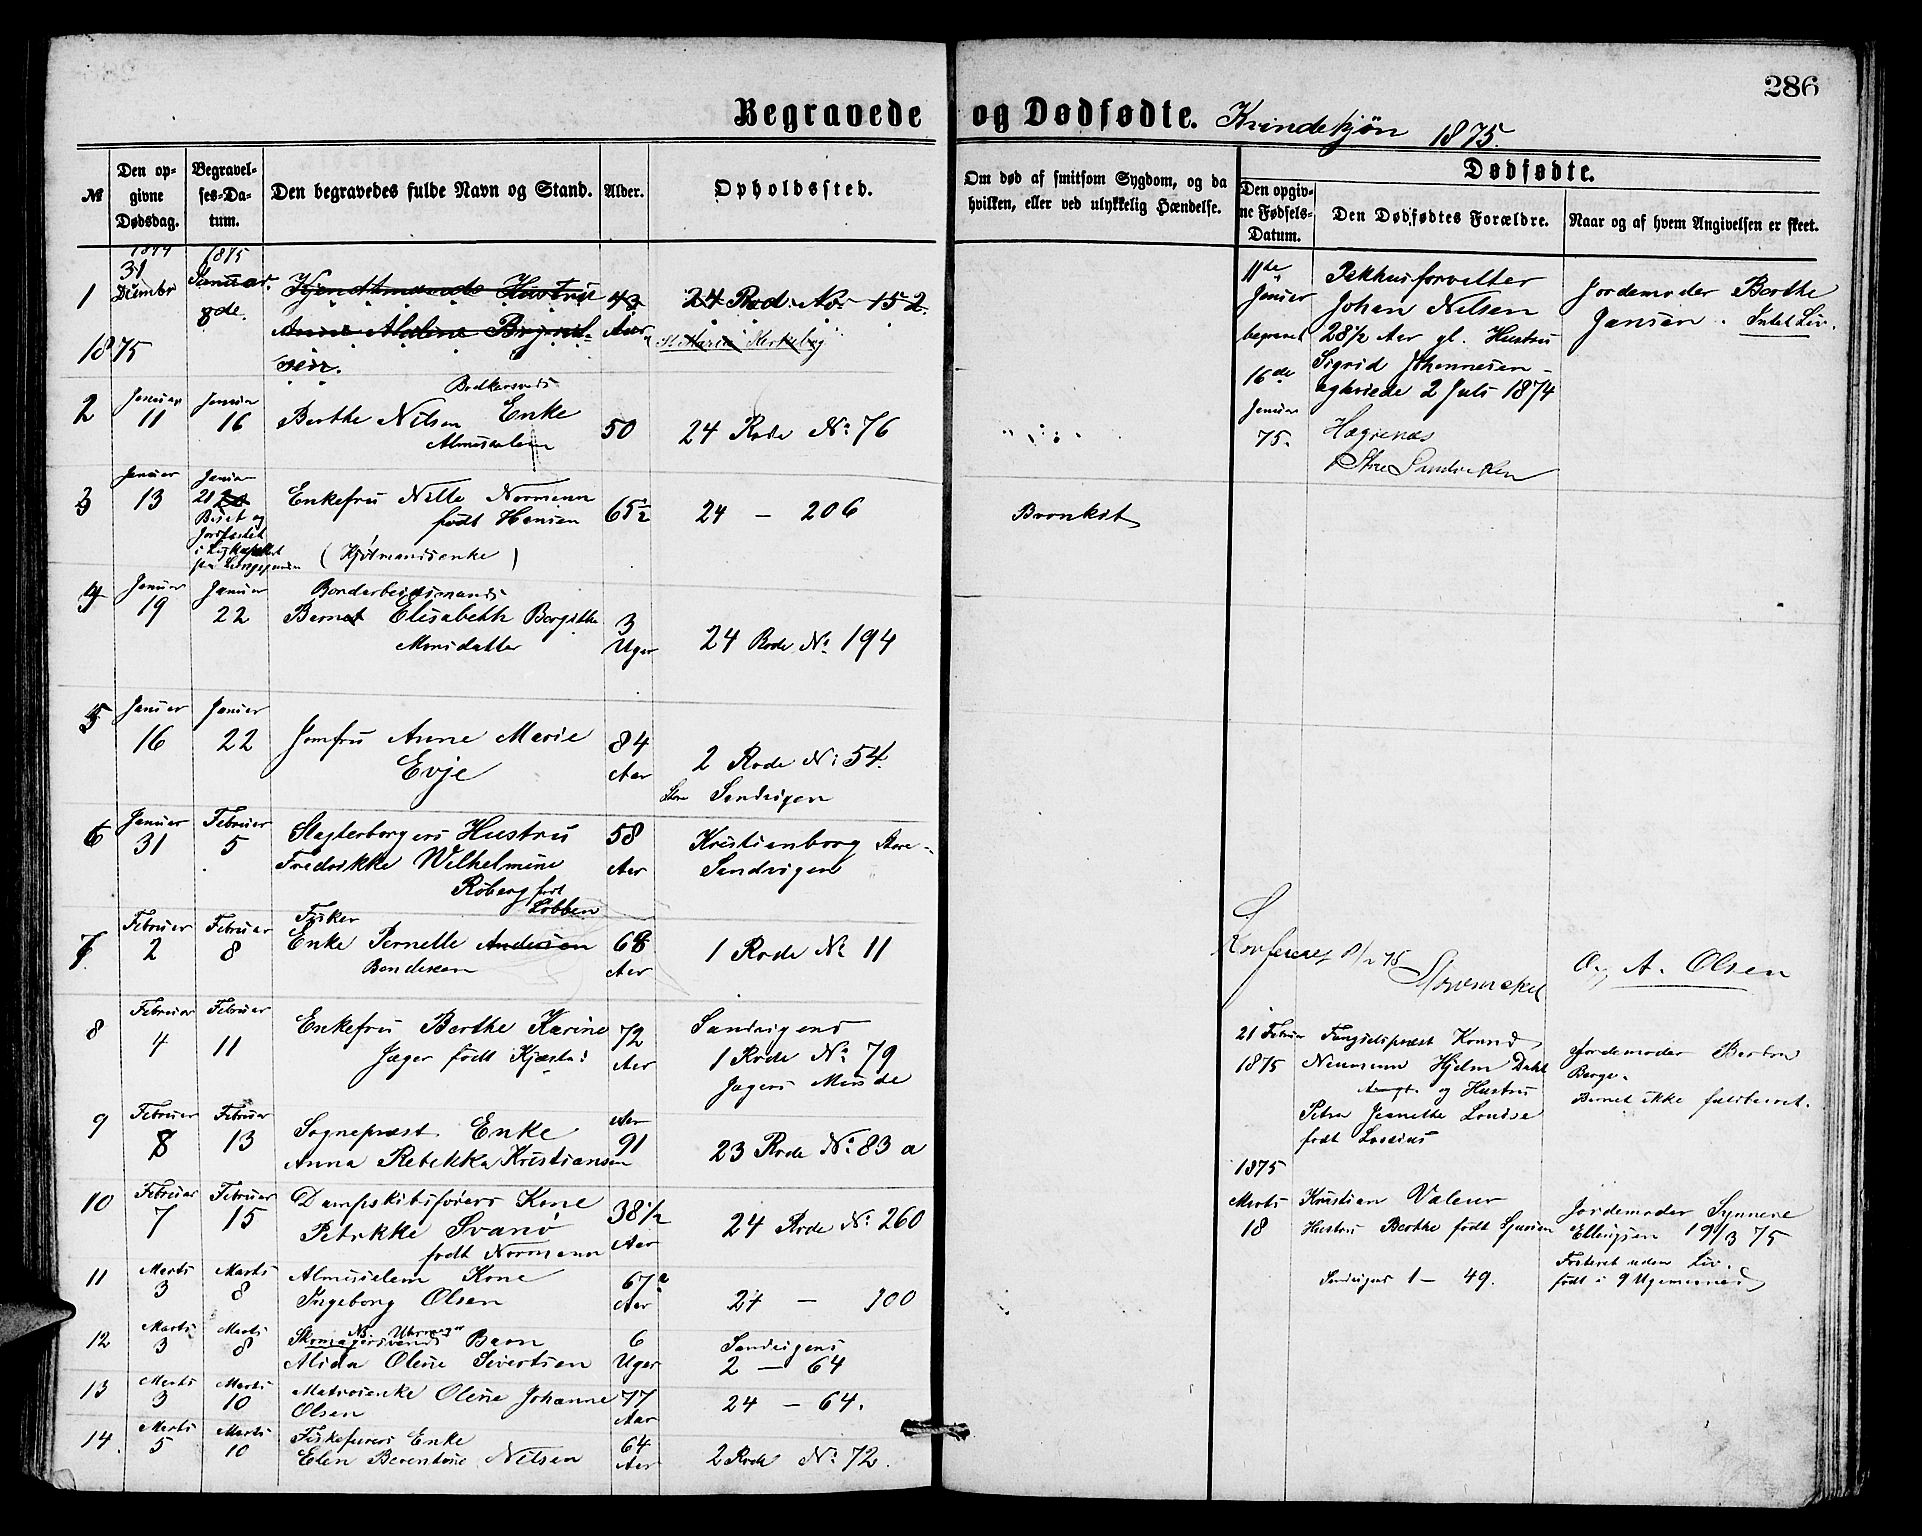 286
Begravede og Dødfødte. Kvindekjøn 1875.
№
Den opgivne Dødsdag.
Begravelses-Datum.
Den begravedes fulde Navn og Stand.
Alder.
Opholdssted.
Om død af smitsom Sygdom, og da hvilken, eller ved ulykkelig Hændelse.
Dødfødte.
Den opgivne Fødsels-Datum.
Den Dødfødtes Forældre.
Naar og af hvem Angivelsen er skeet.
1874 1875
1 31 Januar 8de Hustru 43 Aar 24 Rode No 152
1875
Bødkersvends
2 Januar 11 Januar 16 Berthe Nilsen Enke 50 24 Rode No 76
Almisselem
3 Januar 13 Januar 21 Enkefru Nille Normann 65½ 24 — 206 Bronkit
født Hansen
Biset og
Jordfæstet
i Ligkapellet
(Kjøbmandsenke)
4 Januar 19 Januar 22 Elisabeth Bergitte 3 Uger 24 Rode No 194
Monsdatter
5 Januar 16 Januar 22 Jomfru Anne Marie 84 Aar 2 Rode No 54
Evje Store Sandvigen
6 Januar 31 Februar 5 Slagterborgers Hustru 58 Aar Kristienborg Store-
Fredrikke Wilhelmine Sandvigen
Roberg født
Lobben
7 Februar 2 Februar 8 Fisker
Enke Pernelle Andersen 68 Aar 1 Rode No 11
8 Februar 4 Februar 11 Enkefru Berthe Karine 72 Aar Sandvigens
Jæger født 1 Rode No 79
Jægers Minde
9 Februar 8 Februar 13 Sognepræst Enke Aar 91 23 Rode No 83 a
Anna Rebekka Kristiansen
10 Februar 7 Februar 15 Dampskibsførers Kone 38½ Aar 24 Rode No 260
Petrikke Svanø
født Normann
11 Marts 3 Marts 8 Almisselem Kone 67 Aar 24 — 100
Ingeborg Olsen
12 Marts 3 Marts 8 Skomagersvends Barn 6 Uger Sandvigens
Alida Oline Sivertsen 2 — 64
13 Marts 3 Marts 10 Matrosenke Oline Johanne 77 Aar 24 — 64.
Olsen
14 Marts 5 Marts 10 Enke 64 Aar 2 Rode No 72.
Elen Berentine Nilsen
11te Januar
begravet
16de Januar
75.
Pakhusforvalter
Johan Nilsen
28½ Aar gl. Hustru
Sigrid Johannesen
2 Juli 1874
Hægrenæs
Store Sandviken
Jordemoder Berthe
Jansen. Intet Liv.
O. A. Olsen
21 Februar
1875
Konrad
Neumann Hjelm Dahl
og Hustru
Petra Jeanette Lovise
født
Jordemoder
Berge.
Barnet ikke fuldbaaret.
1875
Marts
18
Kristian Valeur
Hustru Berthe født
Sandvigens 1 — 49.
Jordemoder Synneve
Ellingsen 19/3 75
Fosteret uden Liv.
født i 9 Ugemaaned